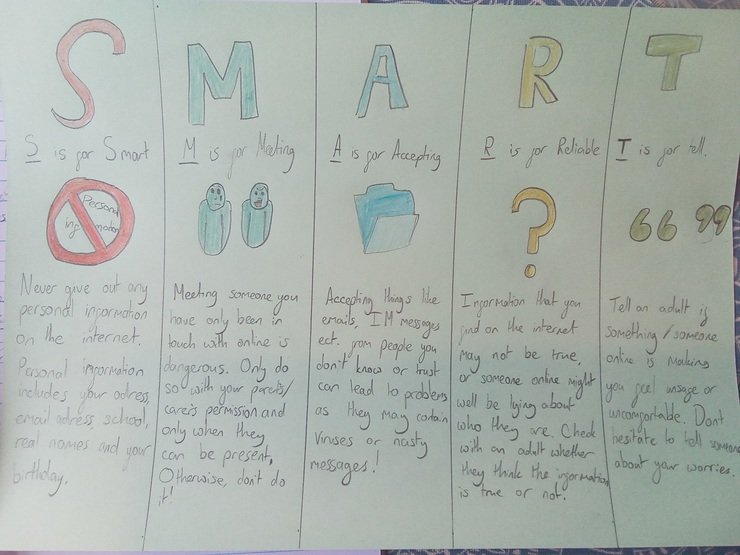 S
S is for Smart
Personal
information
Never give out any
personal information
on the internet.
Personal information
includes your adress,
email adress, school,
real names and your
birthday.
M
M is for Meeting
Meeting someone you
have only been in
touch with online is
dangerous. Only do
so with your parents/
carers permission and
only when they
can be present,
Otherwise, don't do
it!
A
A is for Accepting
Accepting things like
emails, IM messages
ect. from people you
don't know or trust
can lead to problems
as they may contain
viruses or nasty
messages!
R
R is for Reliable
?
Information that you
find on the internet
may not be true,
or someone online might
well be lying about
who they are. Check
with an adult whether
they think the information
is true or not.
T
T is for tell.
66 99
Tell an adult if
something/someone
online is making
you feel unsafe or
uncomfortable. Dont
hesitate to tell someone
about your worries.